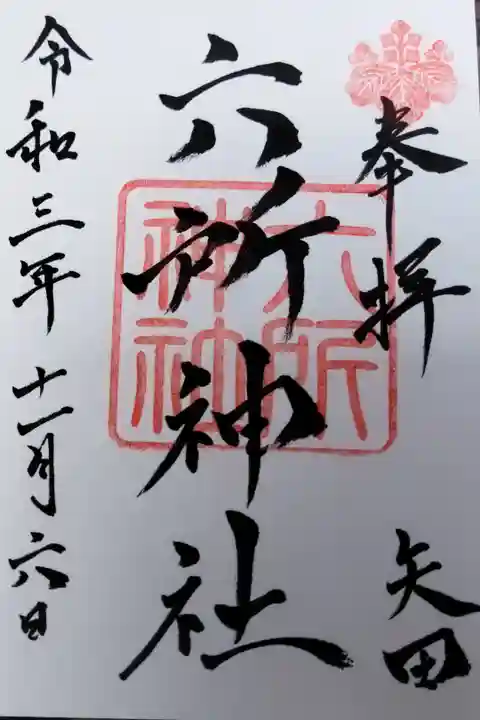 奉拝
矢田
六所神社
六所神社
令和三年十一月六日